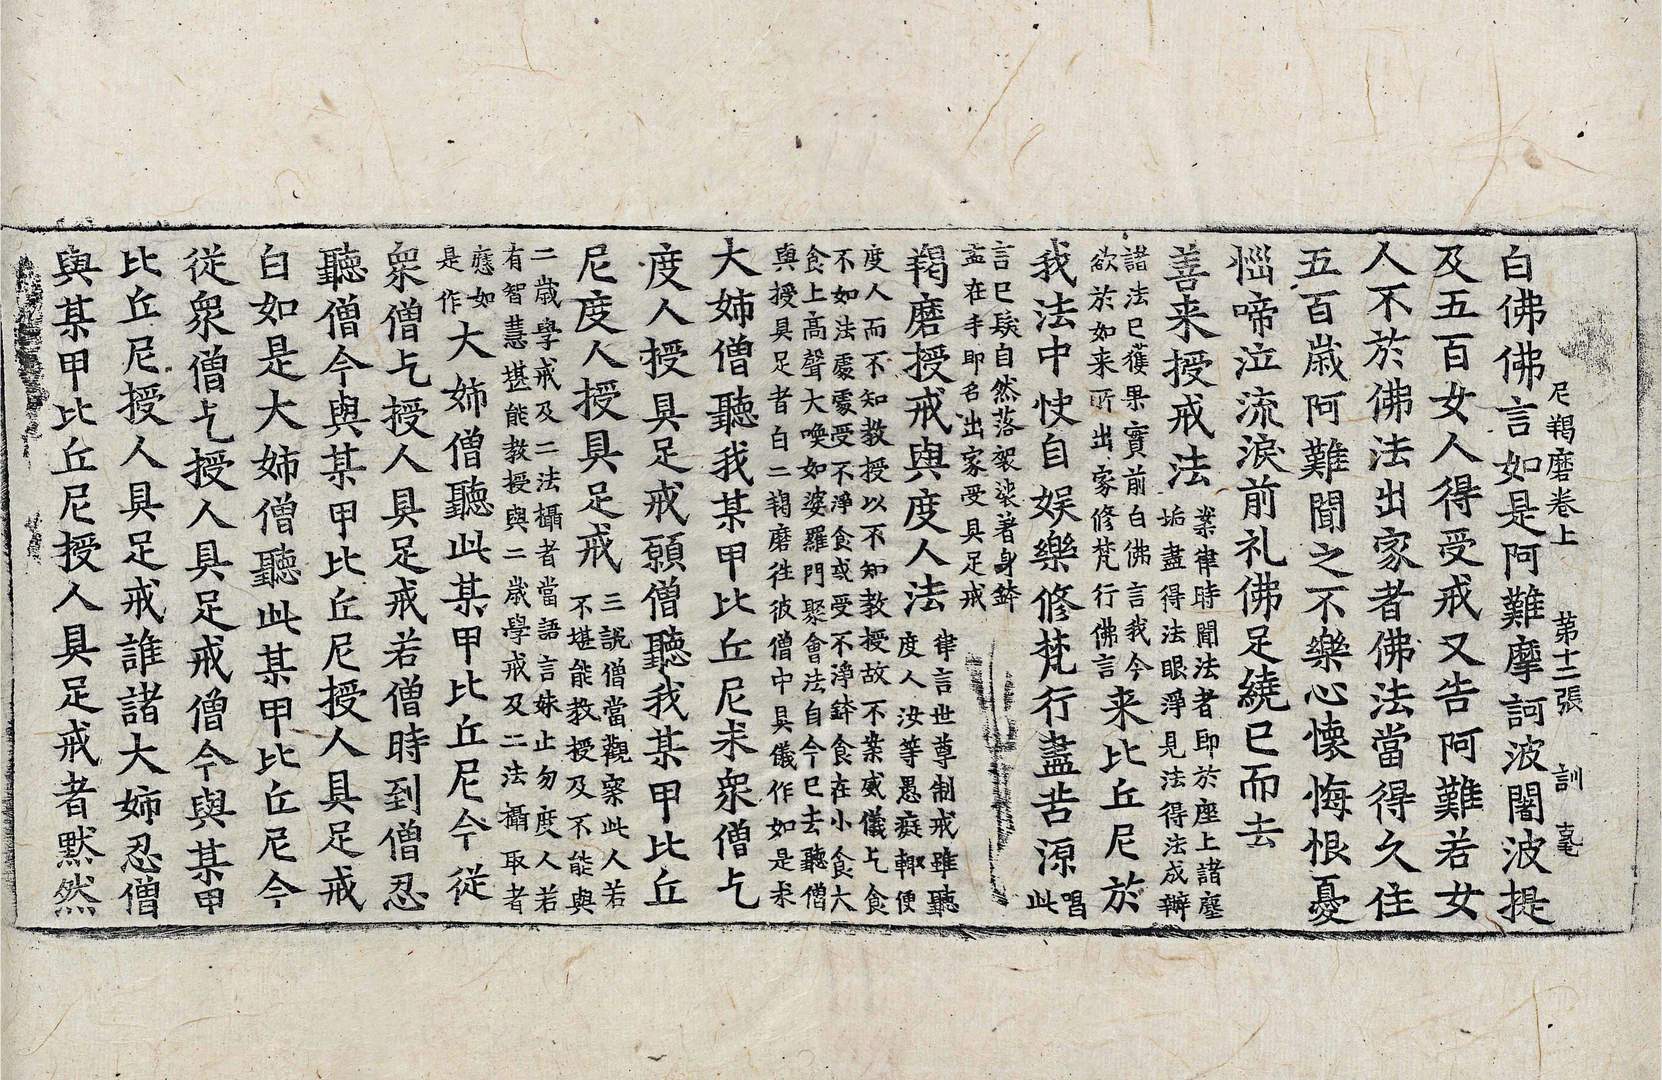 尼羯磨卷上 第十二張 訓
白佛佛言如是阿難摩訶波闍波提
及五百女人得受戒又告阿難若女
人不於佛法出家者佛法當得久住
五百歲阿難聞之不樂心懷悔恨憂
惱啼泣流淚前礼佛足繞已而去
善来授戒法 業律時聞法者即於座上諸塵
垢盡得法眼淨見法得法成辦
諸法已獲果實前白佛言我今
欲於如来所出家修梵行佛言 来比丘尼於
我法中快自娱樂修梵行盡苦源 唱
此
言已髮自然落袈裟著身鉢
盂在手即名出家受具足戒
羯磨授戒與度人法 律言世尊制戒雖聽
度人汝等愚癡輙便
度人而不知教授以不知教授故不業威儀乞食
不如法處處受不淨食或受不淨鉢食在小食大
食上高聲大喚如婆羅門聚會法自今已去聽僧
與授具足者白二羯磨往彼僧中具儀作如是求
大姊僧聽我某甲比丘尼求衆僧乞
度人授具足戒願僧聽我某甲比丘
尼度人授具足戒 三說僧當觀察此人若
不堪能教授及不能與
二歲學戒及二法攝者當語言妹止勿度人若
有智慧堪能教授與二歲學戒及二法攝取者
應如
是作 大姊僧聽此某甲比丘尼今從
衆僧乞授人具足戒若僧時到僧忍
聽僧今與某甲比丘尼授人具足戒
白如是大姊僧聽此某甲比丘尼今
從衆僧乞授人具足戒僧今與某甲
比丘尼授人具足戒誰諸大姊忍僧
與某甲比丘尼授人具足戒者默然